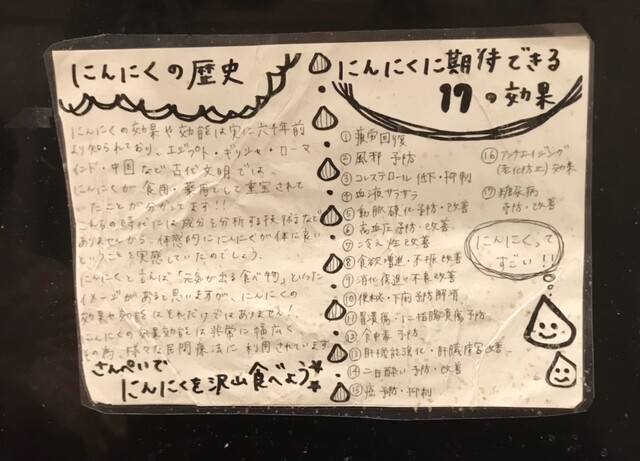 にんにくの歴史
にんにくの効果や効能は実に六千年前
より知られており、エジプト・ギリシャ・ローマ
インド・中国など古代文明では、
にんにくが食用・薬用として重宝されて
いたことが分かってます!!
こんな時代には成分を分析する技術など
ありませんから、体感的ににんにくが体に良い
ということを実感していたのでしょう。
にんにくと言えば「元気が出る食べ物」といった
イメージがあると思いますが、にんにくの
効果や効能はそれだけではありません!
にんにくの効果効能は非常に幅広く
その為、様々な民間療法に利用されています
さんぺいで
にんにくを沢山食べよう
にんにくに期待できる
17の効果
①疲労回復
②風邪 予防
③コレステロール 低下・抑制
④血液サラサラ
⑤動脈硬化予防・改善
⑥高血圧予防・改善
⑦冷え性改善
⑧食欲増進・不振改善
⑨消化促進・不良改善
⑩便秘・下痢予防解消
⑪胃潰瘍・十二指腸潰瘍予防
⑫食中毒予防
⑬肝機能強化・肝臓障害改善
⑭二日酔い予防・改善
⑮癌予防・抑制
⑯アンチエイジング
(老化防止)効果
⑰糖尿病
予防・改善
にんにくって
すごい!!